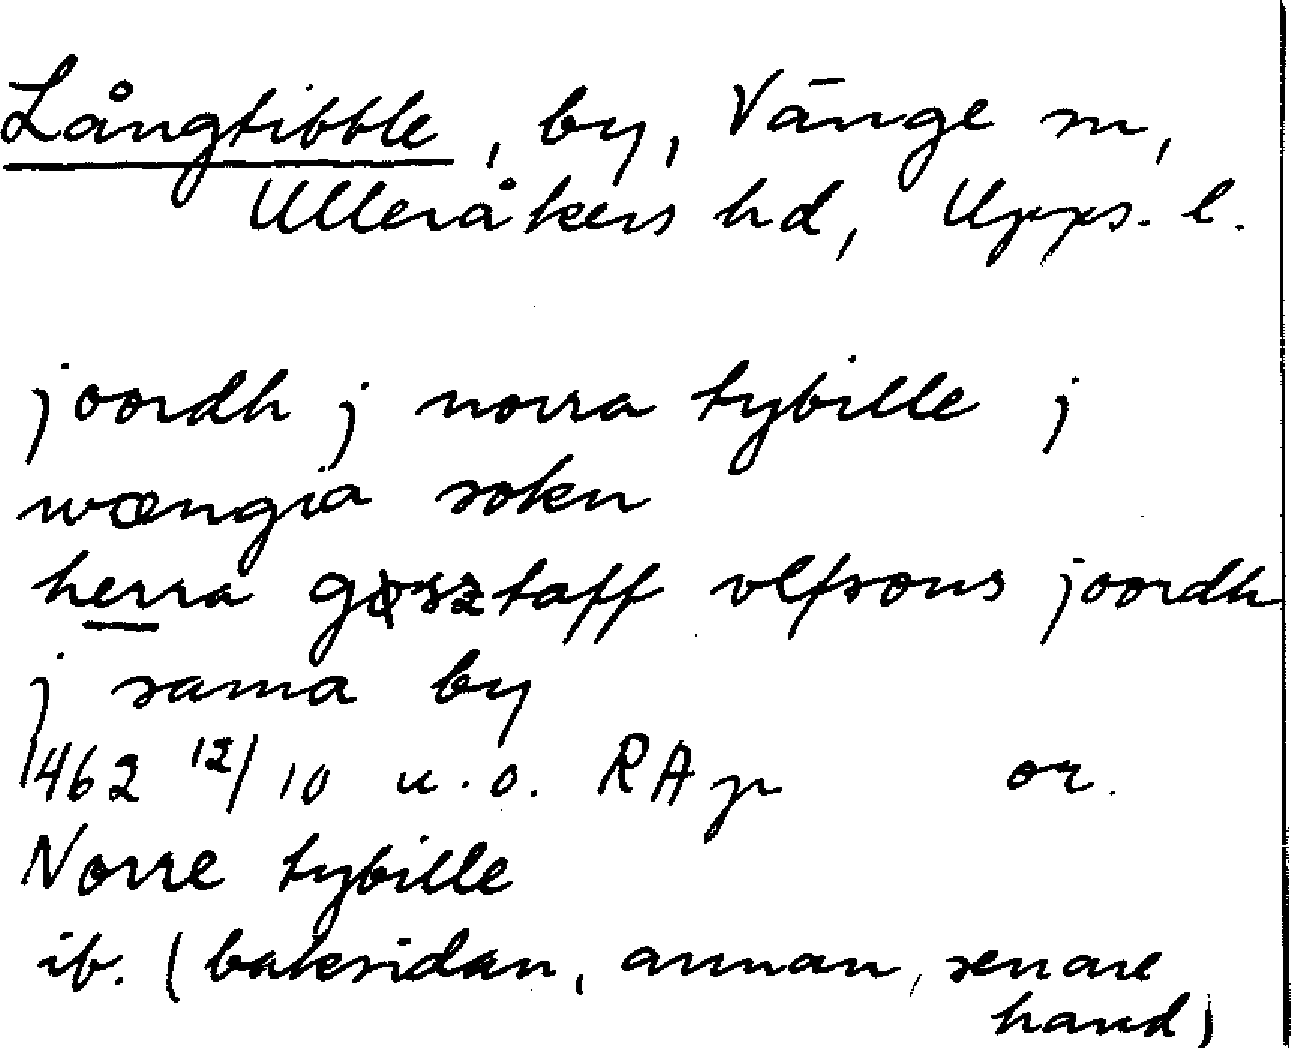 Långtibble, by, Vänge sn,
Ulleråkers hd, Upps. l.
joordh j norra tybille j
wængia sokn
herra gøsztaff vlfsons joordh
j sama by
1462 12/10 u.o. RAp or.
Norre tybille
ib. (baksidan, annan, senare
hand)